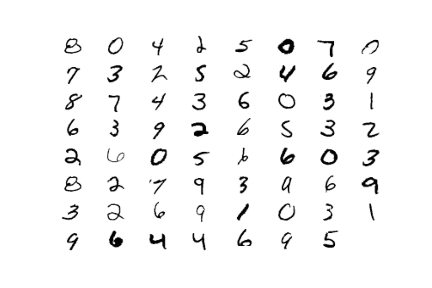 8 0 4 2 5 0 7 0
7 3 2 5 2 4 6 9
8 7 4 3 6 0 3 1
6 3 9 2 6 5 3 2
2 6 0 5 6 6 0 3
8 2 7 9 3 9 6 9
3 2 6 9 1 0 3 1
9 6 4 4 6 9 5